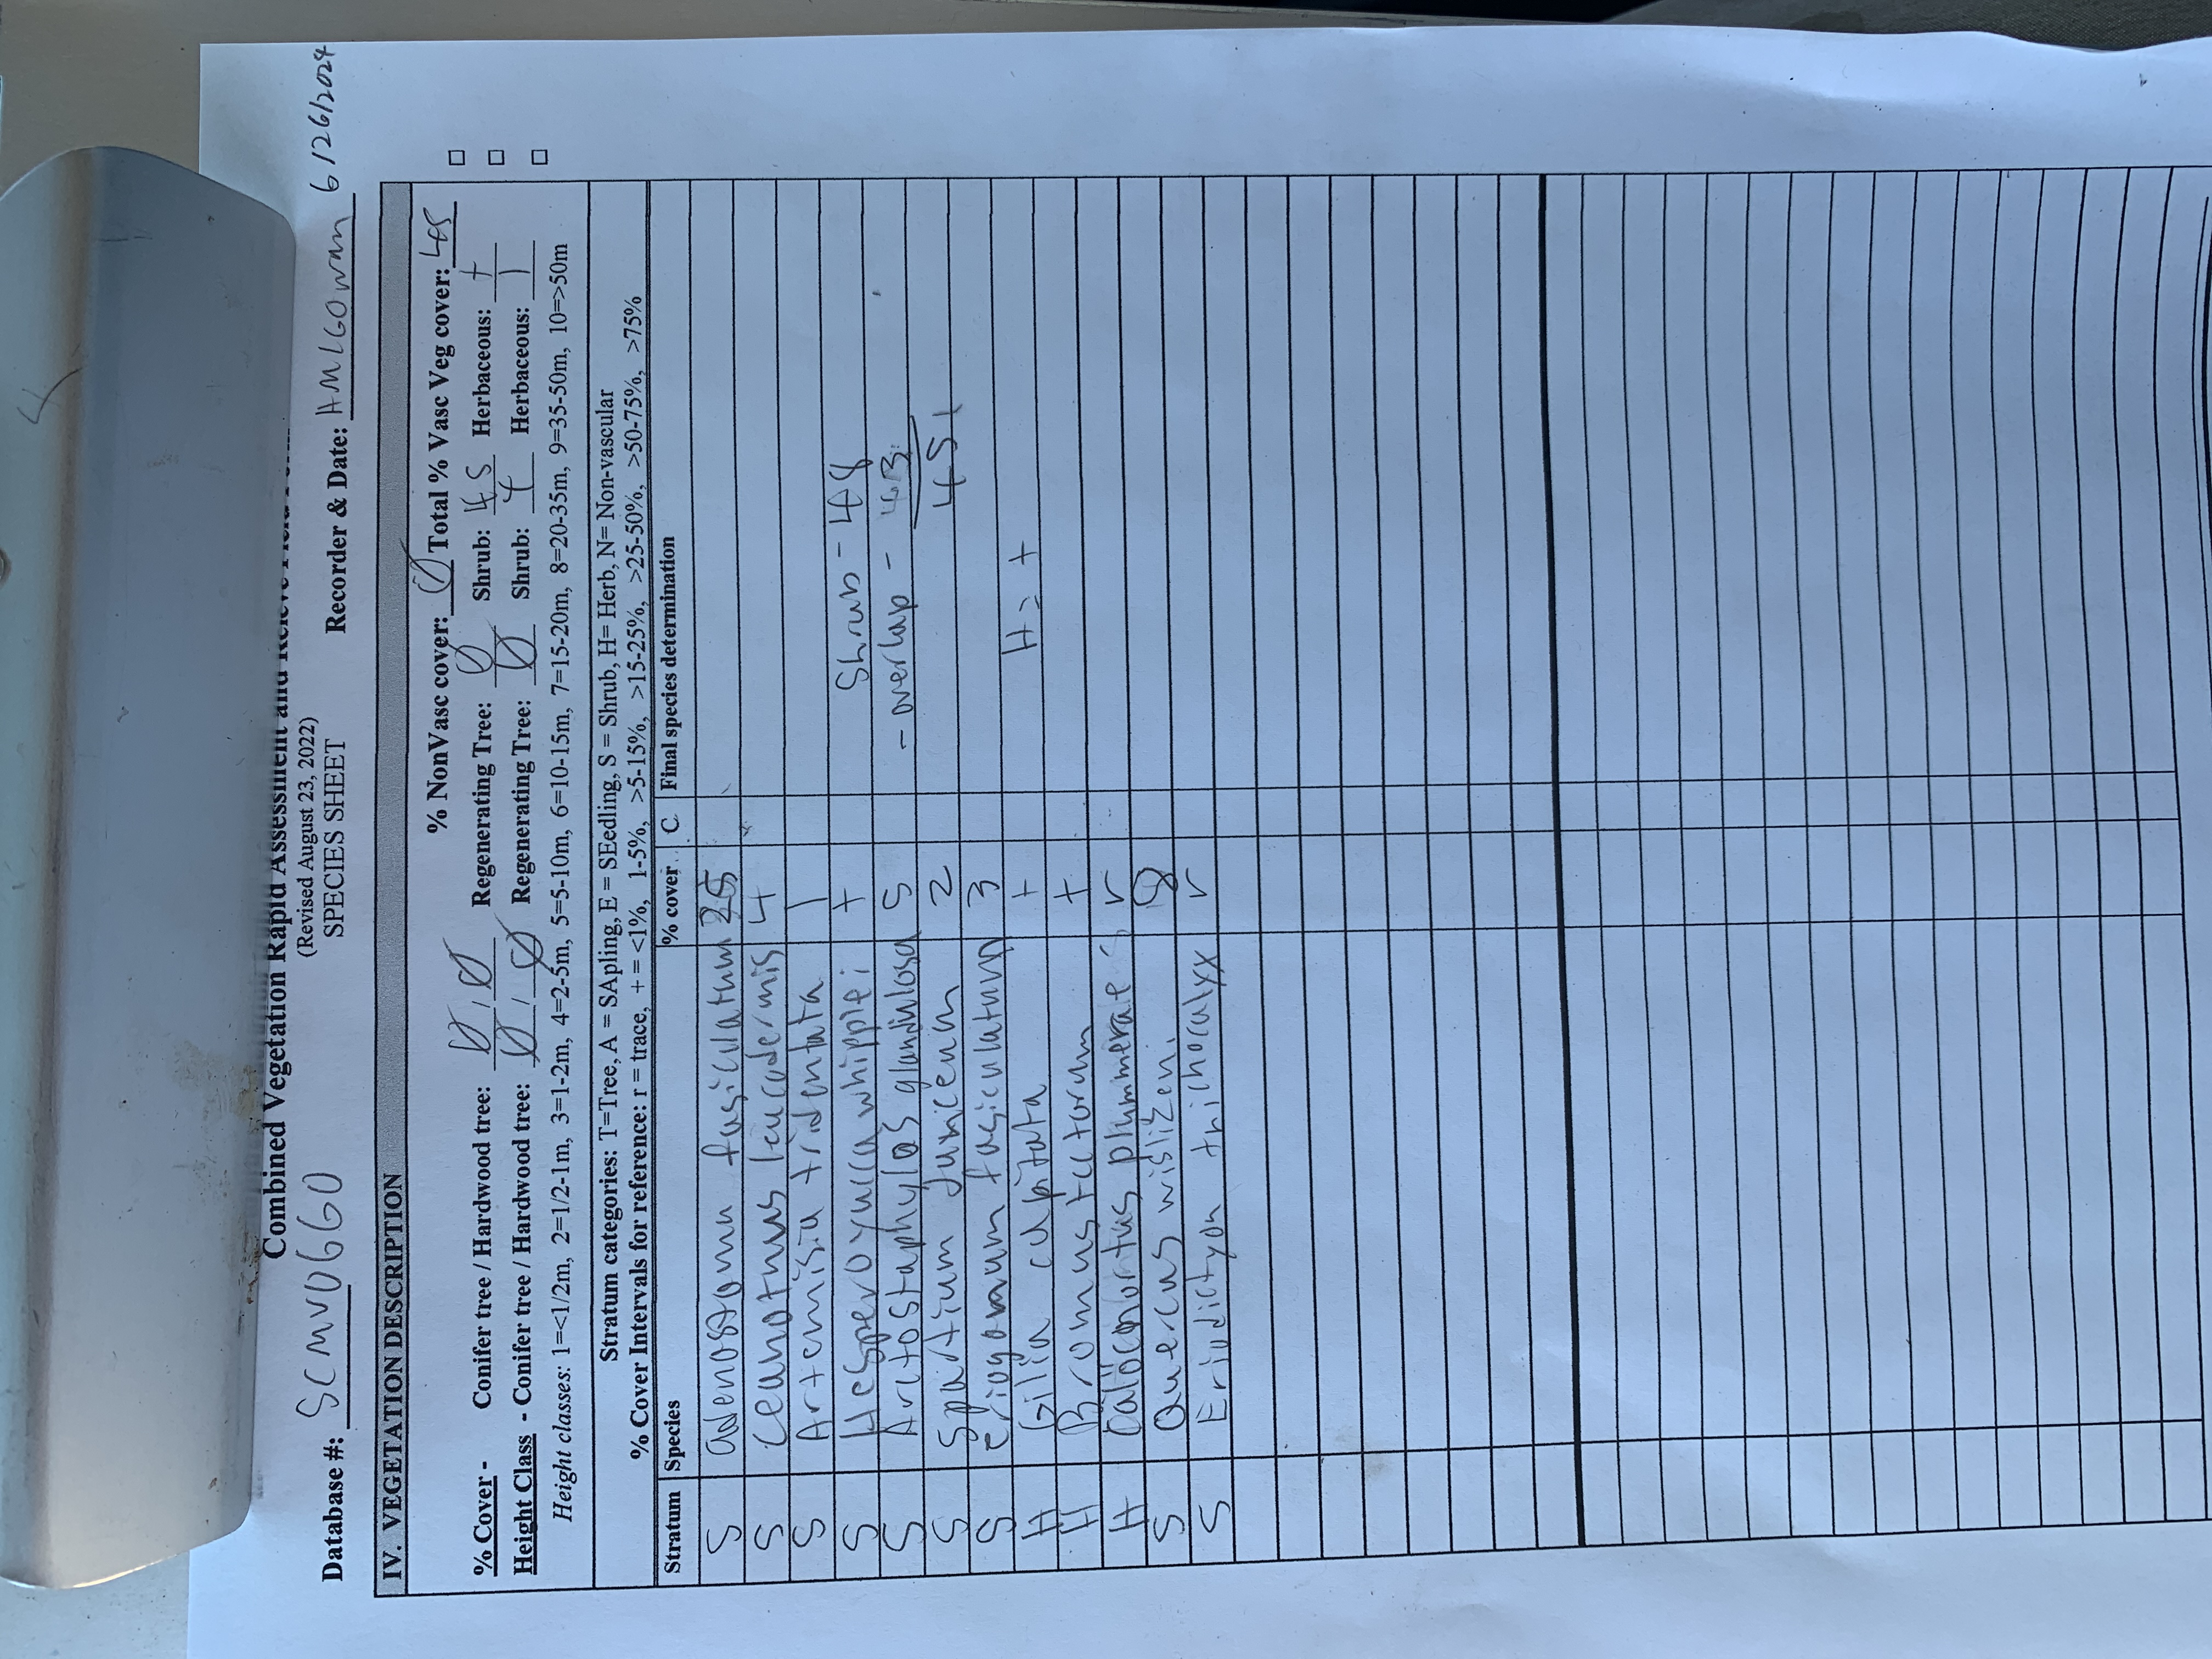 Combined Vegetation Rapid Assessment and Relevé Field Form
(Revised August 23, 2022)
SPECIES SHEET
Database #: SCMV0660 Recorder & Date: 6/26/2024
IV. VEGETATION DESCRIPTION
% NonVasc cover: 0 Total % Vasc Veg cover: 45
% Cover - Conifer tree / Hardwood tree: 0 / 0 Regenerating Tree: 0 Shrub: 45 Herbaceous: +
Height Class - Conifer tree / Hardwood tree: 0 / 0 Regenerating Tree: 0 Shrub: 4 Herbaceous: 1
Height classes: 1=<1/2m, 2=1/2-1m, 3=1-2m, 4=2-5m, 5=5-10m, 6=10-15m, 7=15-20m, 8=20-35m, 9=35-50m, 10=>50m
Stratum categories: T=Tree, A = SApling, E = SEedling, S = Shrub, H= Herb, N= Non-vascular
% Cover Intervals for reference: r = trace, + = <1%, 1-5%, >5-15%, >15-25%, >25-50%, >50-75%, >75%
Stratum Species % cover C Final species determination
S adenostoma fasiculatum
S Ceanothus leucodermis 4
S Artemisia tridentata 1
S Hesperoyucca whipplei + Shrub - 48
S Arctostaphylos glandulosa 5 - overlap -
S Spartium juniceum 2 45+
S eriogonum fasciculatum 3
H Gilia capitata + H = +
H Bromus tectorum +
H Calochortus plummerae r
S Quercus wislizeni
S Eriodictyon trichocalyx r